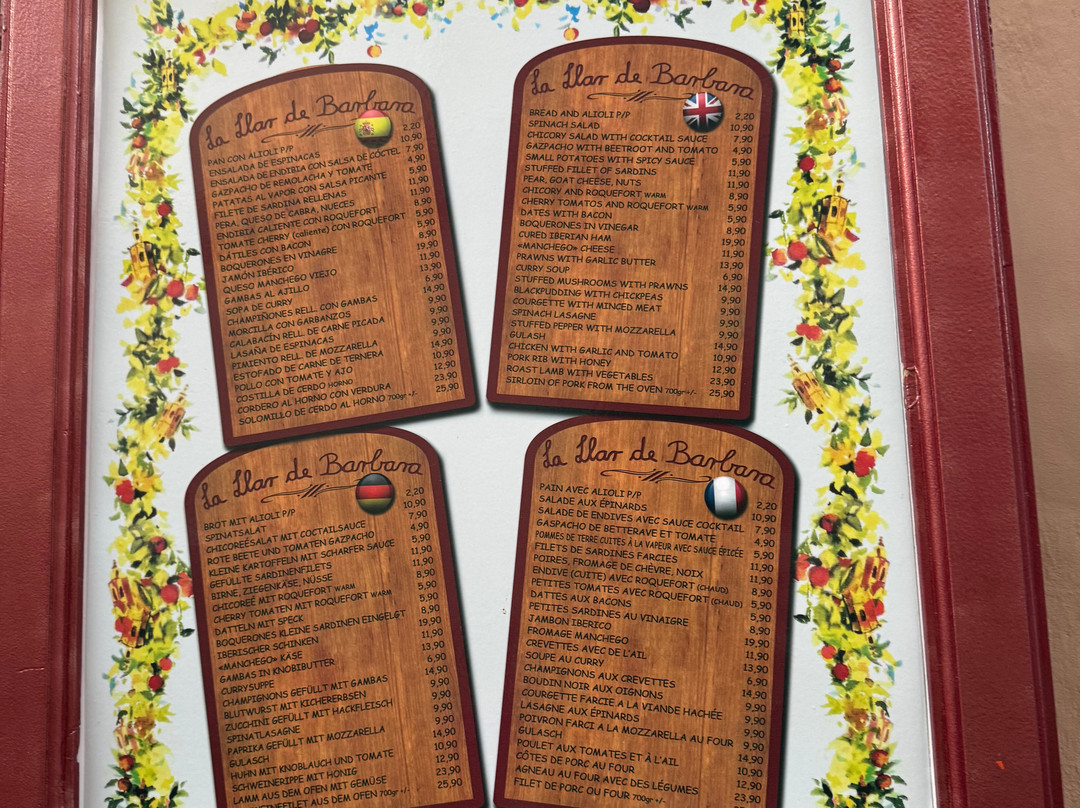 La Llar de Barbara
PAN CON ALIOLI P/P 2,20
ENSALADA DE ESPINACAS 10,90
ENSALADA DE ENDIBIA CON SALSA DE COCTEL 7,90
GAZPACHO DE REMOLACHA Y TOMATE 4,90
PATATAS AL VAPOR CON SALSA PICANTE 5,90
FILETE DE SARDINA RELLENAS 11,90
PERA, QUESO DE CABRA, NUECES 11,90
ENDIBIA CALIENTE CON ROQUEFORT 8,90
TOMATE CHERRY (caliente) CON ROQUEFORT 5,90
DÁTILES CON BACON 5,90
BOQUERONES EN VINAGRE 8,90
JAMÓN IBÉRICO 19,90
QUESO MANCHEGO VIEJO 11,90
GAMBAS AL AJILLO 13,90
SOPA DE CURRY 6,90
CHAMPIÑONES RELL. CON GAMBAS 14,90
MORCILLA CON GARBANZOS 9,90
CALABACÍN RELL. DE CARNE PICADA 9,90
LASAÑA DE ESPINACAS 9,90
PIMIENTO RELL. DE MOZZARELLA 9,90
ESTOFADO DE CARNE DE TERNERA 14,90
POLLO CON TOMATE Y AJO 10,90
COSTILLA DE CERDO HORNO 12,90
CORDERO AL HORNO CON VERDURA 23,90
SOLOMILLO DE CERDO AL HORNO 700gr +/- 25,90
La Llar de Barbara
BREAD AND ALIOLI P/P 2,20
SPINACH SALAD 10,90
CHICORY SALAD WITH COCKTAIL SAUCE 7,90
GAZPACHO WITH BEETROOT AND TOMATO 4,90
SMALL POTATOES WITH SPICY SAUCE 5,90
STUFFED FILLET OF SARDINS 11,90
PEAR, GOAT CHEESE, NUTS 11,90
CHICORY AND ROQUEFORT WARM 8,90
CHERRY TOMATOS AND ROQUEFORT WARM 5,90
DATES WITH BACON 5,90
BOQUERONES IN VINEGAR 8,90
CURED IBERIAN HAM 19,90
«MANCHEGO» CHEESE 11,90
PRAWNS WITH GARLIC BUTTER 13,90
CURRY SOUP 6,90
STUFFED MUSHROOMS WITH PRAWNS 14,90
BLACKPUDDING WITH CHICKPEAS 9,90
COURGETTE WITH MINCED MEAT 9,90
SPINACH LASAGNE 9,90
STUFFED PEPPER WITH MOZZARELLA 9,90
GULASH 14,90
CHICKEN WITH GARLIC AND TOMATO 10,90
PORK RIB WITH HONEY 12,90
ROAST LAMB WITH VEGETABLES 23,90
SIRLOIN OF PORK FROM THE OVEN 700gr+/- 25,90
La Llar de Barbara
BROT MIT ALIOLI P/P 2,20
SPINATSALAT 10,90
CHICOREÉSALAT MIT COCTAILSAUCE 7,90
ROTE BEETE UND TOMATEN GAZPACHO 4,90
KLEINE KARTOFFELN MIT SCHARFER SAUCE 5,90
GEFÜLLTE SARDINENFILETS 11,90
BIRNE, ZIEGENKÄSE, NÜSSE 11,90
CHICOREÉ MIT ROQUEFORT WARM 8,90
CHERRY TOMATEN MIT ROQUEFORT WARM 5,90
DATTELN MIT SPECK 5,90
BOQUERONES KLEINE SARDINEN EINGELGT 8,90
IBERISCHER SCHINKEN 19,90
«MANCHEGO» KÄSE 11,90
GAMBAS IN KNOBIBUTTER 13,90
CURRYSUPPE 6,90
CHAMPIGNONS GEFÜLLT MIT GAMBAS 14,90
BLUTWURST MIT KICHERERBSEN 9,90
ZUCCHINI GEFÜLLT MIT HACKFLEISCH 9,90
SPINATLASAGNE 9,90
PAPRIKA GEFÜLLT MIT MOZZARELLA 9,90
GULASCH 14,90
HUHN MIT KNOBLAUCH UND TOMATE 10,90
SCHWEINERIPPE MIT HONIG 12,90
LAMM AUS DEM OFEN MIT GEMÜSE 23,90
EINEFILET AUS DEM OFEN 700gr +/- 25,90
La Llar de Barbara
PAIN AVEC ALIOLI P/P 2,20
SALADE AUX ÉPINARDS 10,90
SALADE DE ENDIVES AVEC SAUCE COCKTAIL 7,90
GASPACHO DE BETTERAVE ET TOMATE 4,90
POMMES DE TERRE CUITES À LA VAPEUR AVEC SAUCE ÉPICÉE 5,90
FILETS DE SARDINES FARCIES 11,90
POIRES, FROMAGE DE CHÈVRE, NOIX 11,90
ENDIVE (CUITE) AVEC ROQUEFORT (CHAUD) 8,90
PETITES TOMATES AVEC ROQUEFORT (CHAUD) 5,90
DATTES AUX BACONS 5,90
PETITES SARDINES AU VINAIGRE 8,90
JAMBON IBERICO 19,90
FROMAGE MANCHEGO 11,90
CREVETTES AVEC DE L'AIL 13,90
SOUPE AU CURRY 6,90
CHAMPIGNONS AUX CREVETTES 14,90
BOUDIN NOIR AUX OIGNONS 9,90
COURGETTE FARCIE A LA VIANDE HACHÉE 9,90
LASAGNE AUX ÉPINARDS 9,90
POIVRON FARCI A LA MOZZARELLA AU FOUR 9,90
GULASCH 14,90
POULET AUX TOMATES ET À L'AIL 10,90
CÔTES DE PORC AU FOUR 12,90
AGNEAU AU FOUR AVEC DES LÉGUMES 23,90
FILET DE PORC OU FOUR 700gr +/-